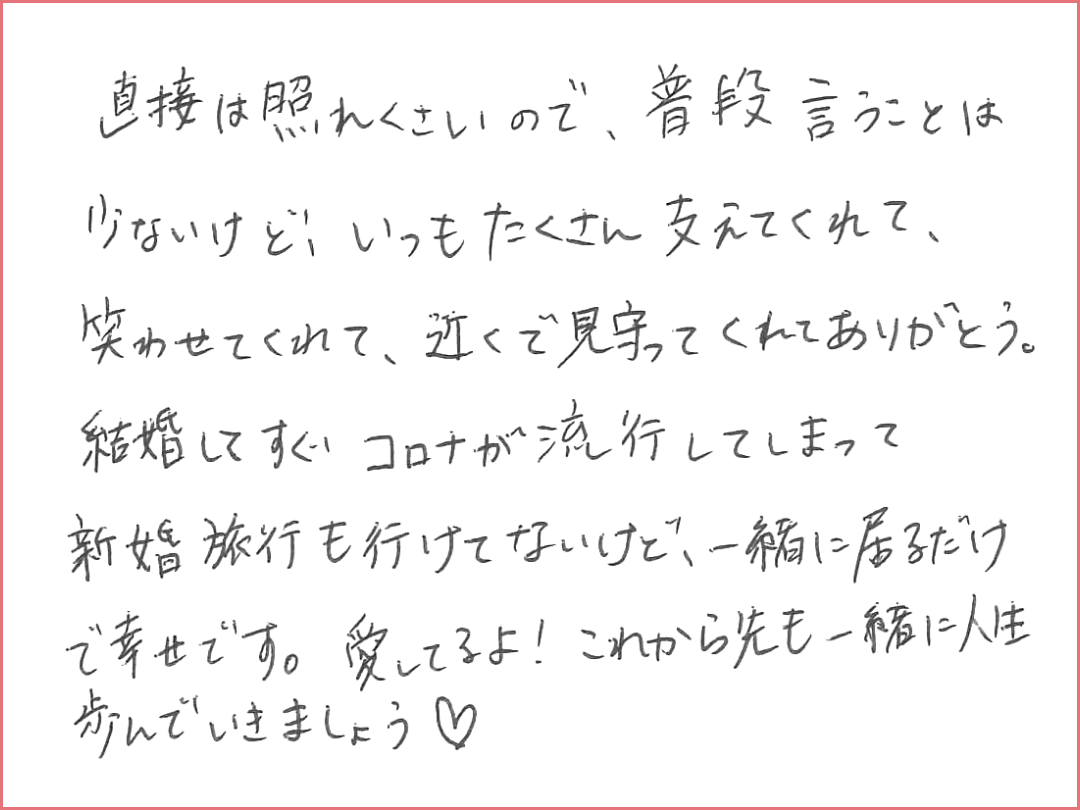 直接は照れくさいので、普段言うことは
少ないけど、いつもたくさん支えてくれて、
笑わせてくれて、近くで見守ってくれてありがとう。
結婚してすぐコロナが流行してしまって
新婚旅行も行けてないけど、一緒に居るだけ
で幸せです。愛してるよ!これから先も一緒に人生
歩んでいきましょう♡